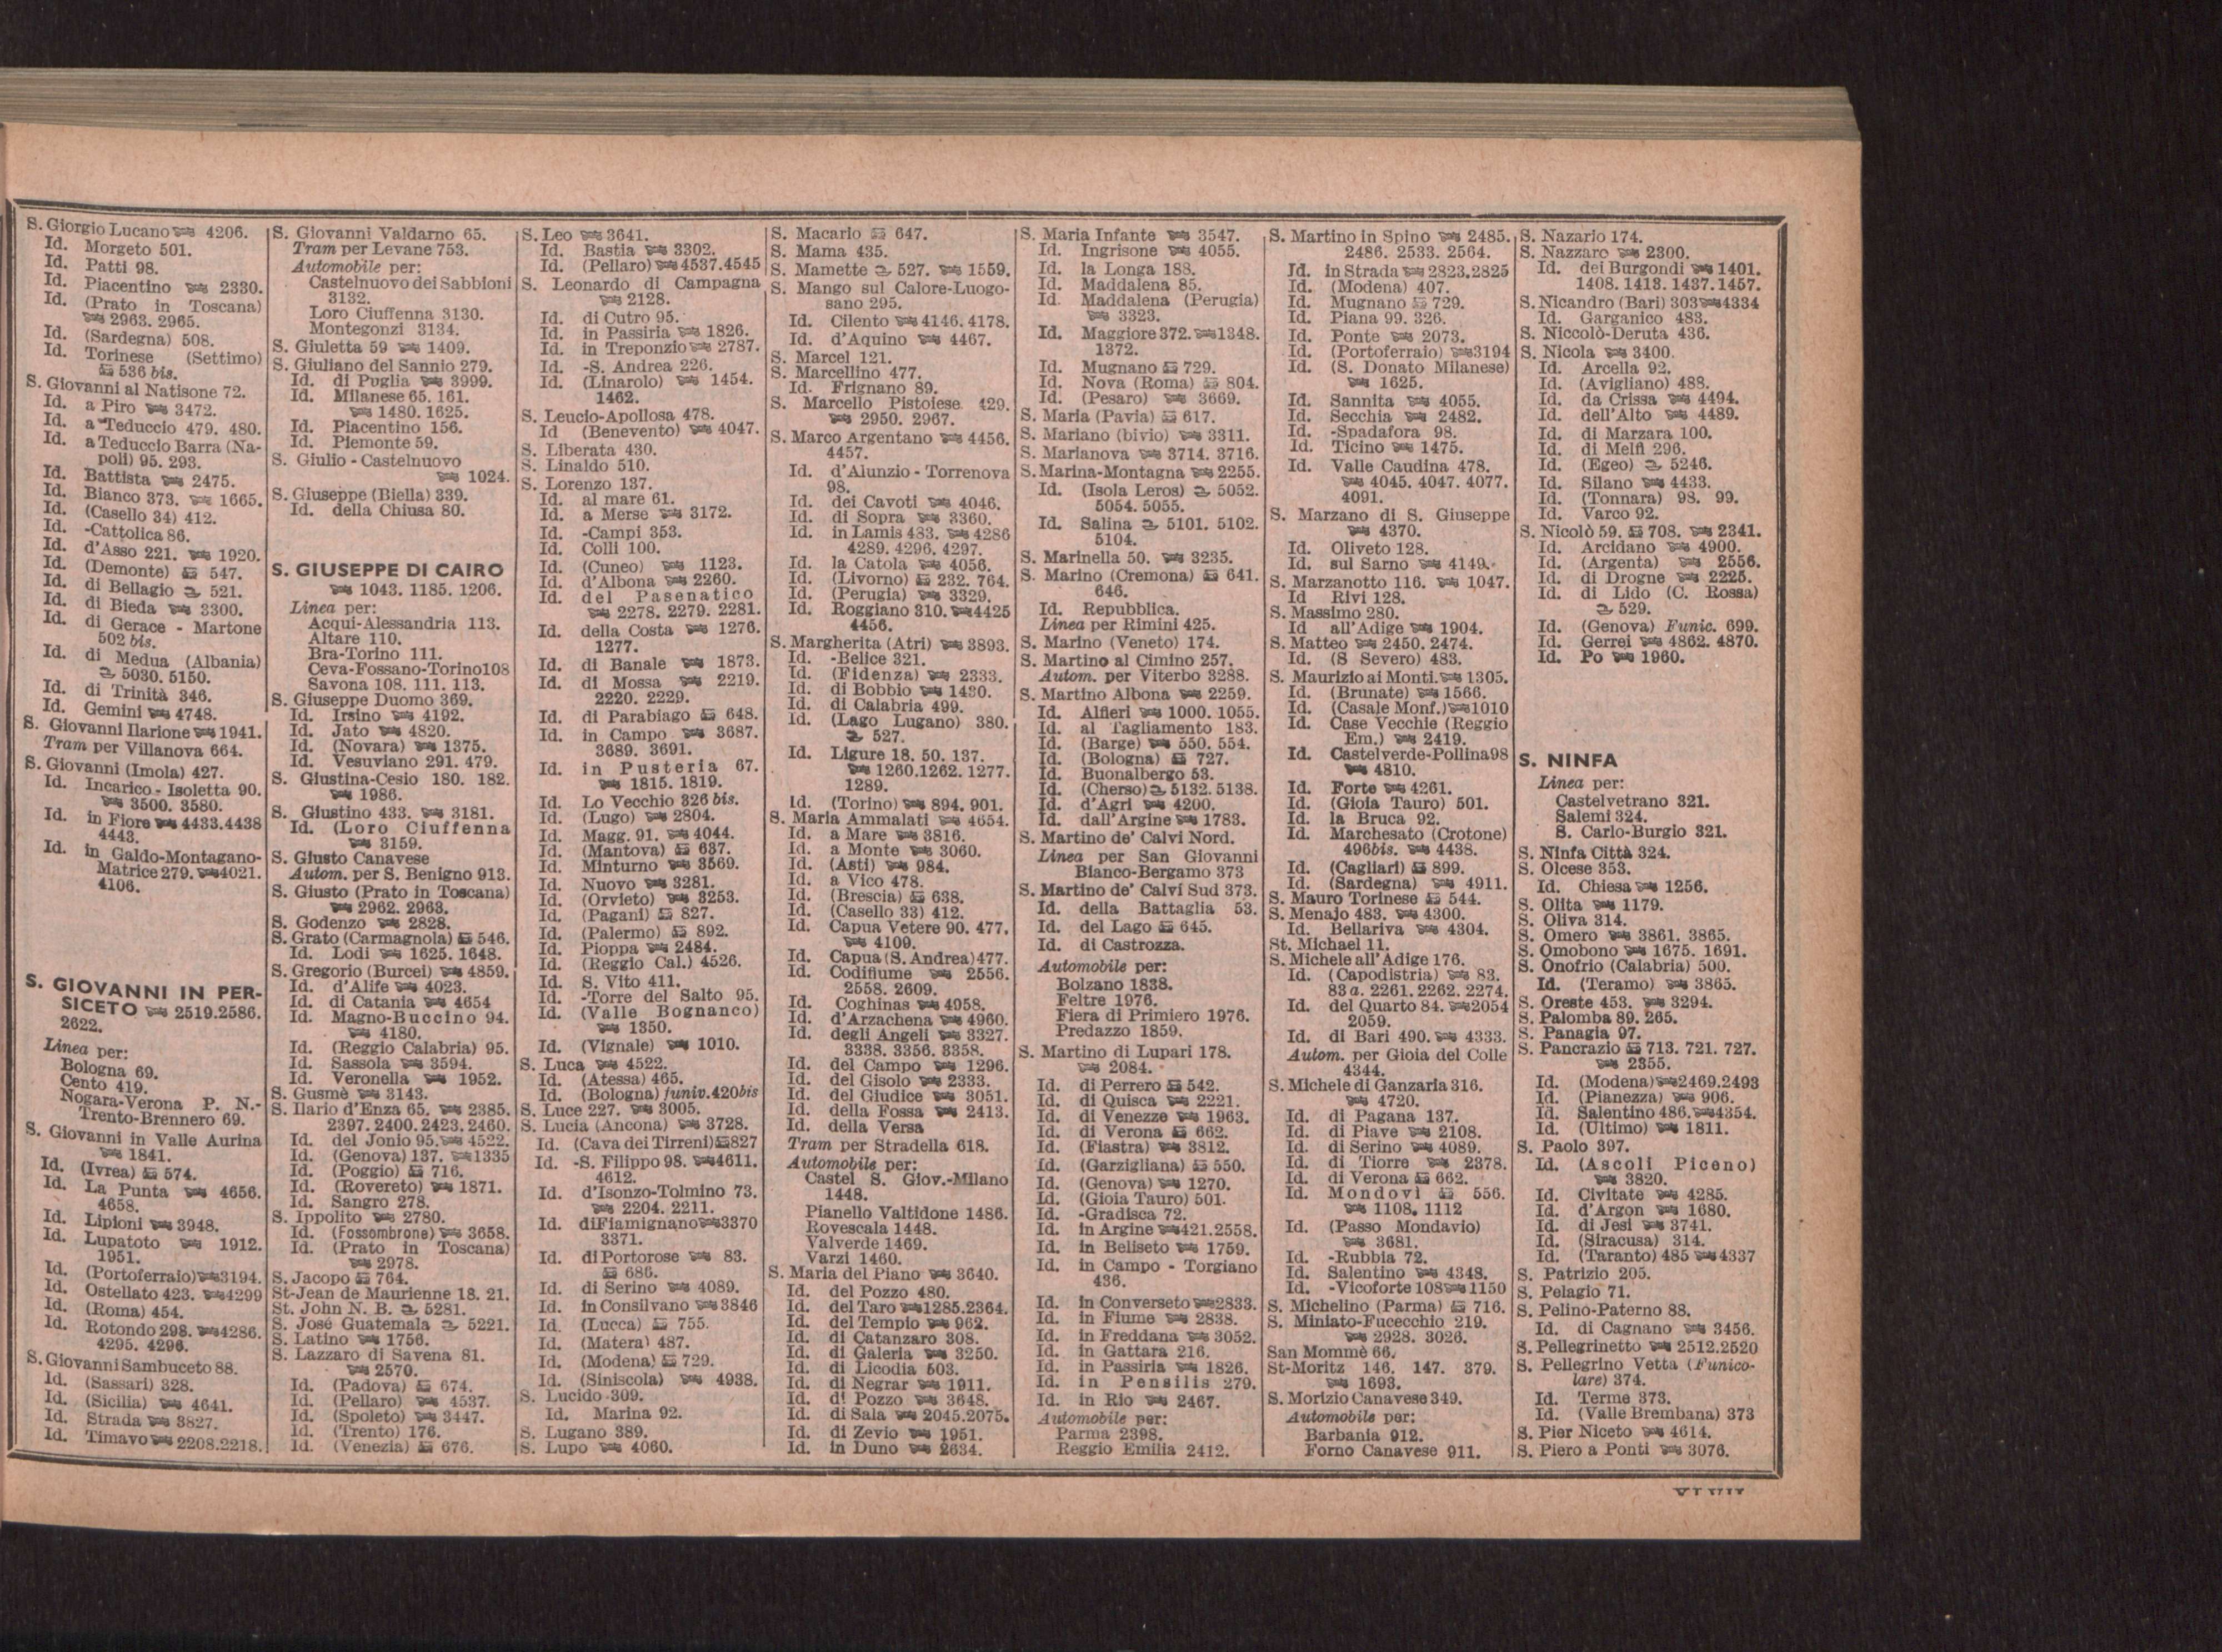 S. Giorgio Lucano 4206.
Id. Morgeto 501.
Id. Patti 98.
Id. Piacentino 2330.
Id. (Prato in Toscana)
2963. 2965.
Id. (Sardegna) 508.
Id. Torinese (Settimo)
536 bis.
S. Giovanni al Natisone 72.
Id. a Piro 3472.
Id. a Teduccio 479. 480.
Id. a Teduccio Barra (Na-
poli) 95. 293.
Id. Battista 2475.
Id. Bianco 373. 1665.
Id. (Casello 34) 412.
Id. -Cattolica 86.
Id. d'Asso 221. 1920.
Id. (Demonte) 547.
Id. di Bellagio 521.
Id. di Bieda 3300.
Id. di Gerace - Martone
502 bis.
Id. di Medua (Albania)
5030. 5150.
Id. di Trinità 346.
Id. Gemini 4748.
S. Giovanni Ilarione 1941.
Tram per Villanova 664.
S. Giovanni (Imola) 427.
Id. Incarico - Isoletta 90.
3500. 3580.
Id. in Fiore 4433.4438
4443.
Id. in Galdo-Montagano-
Matrice 279. 4021.
4106.
S. GIOVANNI IN PER-
SICETO 2519.2586.
2622.
Linea per:
Bologna 69.
Cento 419.
Nogara-Verona P. N.-
Trento-Brennero 69.
S. Giovanni in Valle Aurina
1841.
Id. (Ivrea) 574.
Id. La Punta 4656.
4658.
Id. Lipioni 3948.
Id. Lupatoto 1912.
1951.
Id. (Portoferraio) 3194.
Id. Ostellato 423. 4299
Id. (Roma) 454.
Id. Rotondo 298. 4286.
4295. 4296.
S. Giovanni Sambuceto 88.
Id. (Sassari) 328.
Id. (Sicilia) 4641.
Id. Strada 3827.
Id. Timavo 2208.2218.
S. Giovanni Valdarno 65.
Tram per Levane 753.
Automobile per:
Castelnuovo dei Sabbioni
3132.
Loro Ciuffenna 3130.
Montegonzi 3134.
S. Giuletta 59 1409.
S. Giuliano del Sannio 279.
Id. di Puglia 3999.
Id. Milanese 65. 161.
1480. 1625.
Id. Piacentino 156.
Id. Piemonte 59.
S. Giulio - Castelnuovo
1024.
S. Giuseppe (Biella) 339.
Id. della Chiusa 80.
S. GIUSEPPE DI CAIRO
1043. 1185. 1206.
Linea per:
Acqui-Alessandria 113.
Altare 110.
Bra-Torino 111.
Ceva-Fossano-Torino108
Savona 108. 111. 113.
S. Giuseppe Duomo 369.
Id. Irsino 4192.
Id. Jato 4820.
Id. (Novara) 1375.
Id. Vesuviano 291. 479.
S. Giustina-Cesio 180. 182.
1986.
S. Giustino 433. 3181.
Id. (Loro Ciuffenna
3159.
S. Giusto Canavese
Autom. per S. Benigno 913.
S. Giusto (Prato in Toscana)
2962. 2963.
S. Godenzo 2828.
S. Grato (Carmagnola) 546.
Id. Lodi 1625. 1648.
S. Gregorio (Burcei) 4859.
Id. d'Alife 4023.
Id. di Catania 4654
Id. Magno-Buccino 94.
4180.
Id. (Reggio Calabria) 95.
Id. Sassola 3594.
Id. Veronella 1952.
S. Gusmè 3143.
S. Ilario d'Enza 65. 2385.
2397. 2400. 2423. 2460.
Id. del Jonio 95. 4522.
Id. (Genova) 137. 1335
Id. (Poggio) 716.
Id. (Rovereto) 1871.
Id. Sangro 278.
S. Ippolito 2780.
Id. (Fossombrone) 3658.
Id. (Prato in Toscana)
2978.
S. Jacopo 764.
St-Jean de Maurienne 18. 21.
St. John N. B. 5281.
S. José Guatemala 5221.
S. Latino 1756.
S. Lazzaro di Savena 81.
2570.
Id. (Padova) 674.
Id. (Pellaro) 4537.
Id. (Spoleto) 3447.
Id. (Trento) 176.
Id. (Venezia) 676.
S. Leo 3641.
Id. Bastia 3302.
Id. (Pellaro) 4537.4545
S. Leonardo di Campagna
2128.
Id. di Cutro 95.
Id. in Passiria 1826.
Id. in Treponzio 2787.
Id. -S. Andrea 226.
Id. (Linarolo) 1454.
1462.
S. Leucio-Apollosa 478.
Id (Benevento) 4047.
S. Liberata 430.
S. Linaldo 510.
S. Lorenzo 137.
Id. al mare 61.
Id. a Merse 3172.
Id. -Campi 353.
Id. Colli 100.
Id. (Cuneo) 1123.
Id. d'Albona 2260.
Id. del Pasenatico
2278. 2279. 2281.
Id. della Costa 1276.
1277.
Id. di Banale 1873.
Id. di Mossa 2219.
2220. 2229.
Id. di Parabiago 648.
Id. in Campo 3687.
3689. 3691.
Id. in Pusteria 67.
1815. 1819.
Id. Lo Vecchio 326 bis.
Id. (Lugo) 2804.
Id. Magg. 91. 4044.
Id. (Mantova) 637.
Id. Minturno 3569.
Id. Nuovo 3281.
Id. (Orvieto) 3253.
Id. (Pagani) 827.
Id. (Palermo) 892.
Id. Pioppa 2484.
Id. (Reggio Cal.) 4526.
Id. S. Vito 411.
Id. -Torre del Salto 95.
Id. (Valle Bognanco)
1350.
Id. (Vignale) 1010.
S. Luca 4522.
Id. (Atessa) 465.
Id. (Bologna) funiv.420bis
S. Luce 227. 3005.
S. Lucia (Ancona) 3728.
Id. (Cava dei Tirreni) 827
Id. -S. Filippo 98. 4611.
4612.
Id. d'Isonzo-Tolmino 73.
2204. 2211.
Id. di Fiamignano 3370
3371.
Id. di Portorose 83.
686.
Id. di Serino 4089.
Id. in Consilvano 3846
Id. (Lucca) 755.
Id. (Matera) 487.
Id. (Modena) 729.
Id. (Siniscola) 4938.
S. Lucido 309.
Id. Marina 92.
S. Lugano 389.
S. Lupo 4060.
S. Macario 647.
S. Mama 435.
S. Mamette 527. 1559.
S. Mango sul Calore-Luogo-
sano 295.
Id. Cilento 4146. 4178.
Id. d'Aquino 4467.
S. Marcel 121.
S. Marcellino 477.
Id. Frignano 89.
S. Marcello Pistoiese 429.
2950. 2967.
S. Marco Argentano 4456.
4457.
Id. d'Alunzio - Torrenova
98.
Id. dei Cavoti 4046.
Id. di Sopra 3360.
Id. in Lamis 483. 4286
4289. 4296. 4297.
Id. la Catola 4056.
Id. (Livorno) 232. 764.
Id. (Perugia) 3329.
Id. Roggiano 310. 4425
4456.
S. Margherita (Atri) 3893.
Id. -Belice 321.
Id. (Fidenza) 2333.
Id. di Bobbio 1430.
Id. di Calabria 499.
Id. (Lago Lugano) 380.
527.
Id. Ligure 18. 50. 137.
1260.1262. 1277.
1289.
Id. (Torino) 894. 901.
S. Maria Ammalati 4654.
Id. a Mare 3816.
Id. a Monte 3060.
Id. (Asti) 984.
Id. a Vico 478.
Id. (Brescia) 638.
Id. (Casello 33) 412.
Id. Capua Vetere 90. 477.
4109.
Id. Capua (S. Andrea) 477.
Id. Codifiume 2556.
2558. 2609.
Id. Coghinas 4958.
Id. d'Arzachena 4960.
Id. degli Angeli 3327.
3338. 3356. 3358.
Id. del Campo 1296.
Id. del Gisolo 2333.
Id. del Giudice 3051.
Id. della Fossa 2413.
Id. della Versa
Tram per Stradella 618.
Automobile per:
Castel S. Giov.-Milano
1448.
Pianello Valtidone 1486.
Rovescala 1448.
Valverde 1469.
Varzi 1460.
S. Maria del Piano 3640.
Id. del Pozzo 480.
Id. del Taro 1285.2364.
Id. del Tempio 962.
Id. di Catanzaro 308.
Id. di Galeria 3250.
Id. di Licodia 503.
Id. di Negrar 1911.
Id. di Pozzo 3648.
Id. di Sala 2045.2075.
Id. di Zevio 1951.
Id. in Duno 2634.
S. Maria Infante 3547.
Id. Ingrisone 4055.
Id. la Longa 188.
Id. Maddalena 85.
Id. Maddalena (Perugia)
3323.
Id. Maggiore 372. 1348.
1372.
Id. Mugnano 729.
Id. Nova (Roma) 804.
Id. (Pesaro) 3669.
S. Maria (Pavia) 617.
S. Mariano (bivio) 3311.
S. Marianova 3714. 3716.
S. Marina-Montagna 2255.
Id. (Isola Leros) 5052.
5054. 5055.
Id. Salina 5101. 5102.
5104.
S. Marinella 50. 3235.
S. Marino (Cremona) 641.
646.
Id. Repubblica.
Linea per Rimini 425.
S. Marino (Veneto) 174.
S. Martino al Cimino 257.
Autom. per Viterbo 3288.
S. Martino Albona 2259.
Id. Alfieri 1000. 1055.
Id. al Tagliamento 183.
Id. (Barge) 550. 554.
Id. (Bologna) 727.
Id. Buonalbergo 53.
Id. (Cherso) 5132. 5138.
Id. d'Agri 4200.
Id. dall'Argine 1783.
S. Martino de' Calvi Nord.
Linea per San Giovanni
Bianco-Bergamo 373
S. Martino de' Calvi Sud 373.
Id. della Battaglia 53.
Id. del Lago 645.
Id. di Castrozza.
Automobile per:
Bolzano 1838.
Feltre 1976.
Fiera di Primiero 1976.
Predazzo 1859.
S. Martino di Lupari 178.
2084.
Id. di Perrero 542.
Id. di Quisca 2221.
Id. di Venezze 1963.
Id. di Verona 662.
Id. (Fiastra) 3812.
Id. (Garzigliana) 550.
Id. (Genova) 1270.
Id. (Gioia Tauro) 501.
Id. -Gradisca 72.
Id. in Argine 421.2558.
Id. in Beliseto 1759.
Id. in Campo - Torgiano
436.
Id. in Converseto 2833.
Id. in Fiume 2838.
Id. in Freddana 3052.
Id. in Gattara 216.
Id. in Passiria 1826.
Id. in Pensilis 279.
Id. in Rio 2467.
Automobile per:
Parma 2398.
Reggio Emilia 2412.
S. Martino in Spino 2485.
2486. 2533. 2564.
Id. in Strada 2823.2825
Id. (Modena) 407.
Id. Mugnano 729.
Id. Piana 99. 326.
Id. Ponte 2073.
Id. (Portoferraio) 3194
Id. (S. Donato Milanese)
1625.
Id. Sannita 4055.
Id. Secchia 2482.
Id. -Spadafora 98.
Id. Ticino 1475.
Id. Valle Caudina 478.
4045. 4047. 4077.
4091.
S. Marzano di S. Giuseppe
4370.
Id. Oliveto 128.
Id. sul Sarno 4149.
S. Marzanotto 116. 1047.
Id Rivi 128.
S. Massimo 280.
Id all'Adige 1904.
S. Matteo 2450. 2474.
Id. (S Severo) 483.
S. Maurizio ai Monti. 1305.
Id. (Brunate) 1566.
Id. (Casale Monf.) 1010
Id. Case Vecchie (Reggio
Em.) 2419.
Id. Castelverde-Pollina98
4810.
Id. Forte 4261.
Id. (Gioia Tauro) 501.
Id. la Bruca 92.
Id. Marchesato (Crotone)
496bis. 4438.
Id. (Cagliari) 899.
Id. (Sardegna) 4911.
S. Mauro Torinese 544.
S. Menajo 483. 4300.
Id. Bellariva 4304.
St. Michael 11.
S. Michele all'Adige 176.
Id. (Capodistria) 83.
83 a. 2261. 2262. 2274.
Id. del Quarto 84. 2054
2059.
Id. di Bari 490. 4333.
Autom. per Gioia del Colle
4344.
S. Michele di Ganzaria 316.
4720.
Id. di Pagana 137.
Id. di Piave 2108.
Id. di Serino 4089.
Id. di Tiorre 2378.
Id. di Verona 662.
Id. Mondovì 556.
1108. 1112
Id. (Passo Mondavio)
3681.
Id. -Rubbia 72.
Id. Salentino 4348.
Id. -Vicoforte 108 1150
S. Michelino (Parma) 716.
S. Miniato-Fucecchio 219.
2928. 3026.
San Mommè 66.
St-Moritz 146. 147. 379.
1693.
S. Morizio Canavese 349.
Automobile per:
Barbania 912.
Forno Canavese 911.
S. Nazario 174.
S. Nazzaro 2300.
Id. dei Burgondi 1401.
1408. 1413. 1437. 1457.
S. Nicandro (Bari) 303 4334
Id. Garganico 483.
S. Niccolò-Deruta 436.
S. Nicola 3400.
Id. Arcella 92.
Id. (Avigliano) 488.
Id. da Crissa 4494.
Id. dell'Alto 4489.
Id. di Marzara 100.
Id. di Melfi 296.
Id. (Egeo) 5246.
Id. Silano 4433.
Id. (Tonnara) 98. 99.
Id. Varco 92.
S. Nicolò 59. 708. 2341.
Id. Arcidano 4900.
Id. (Argenta) 2556.
Id. di Drogne 2225.
Id. di Lido (C. Rossa)
529.
Id. (Genova) Funic. 699.
Id. Gerrei 4862. 4870.
Id. Po 1960.
S. NINFA
Linea per:
Castelvetrano 321.
Salemi 324.
S. Carlo-Burgio 321.
S. Ninfa Città 324.
S. Olcese 353.
Id. Chiesa 1256.
S. Olita 1179.
S. Oliva 314.
S. Omero 3861. 3865.
S. Omobono 1675. 1691.
S. Onofrio (Calabria) 500.
Id. (Teramo) 3865.
S. Oreste 453. 3294.
S. Palomba 89. 265.
S. Panagia 97.
S. Pancrazio 713. 721. 727.
2355.
Id. (Modena) 2469.2493
Id. (Pianezza) 906.
Id. Salentino 486. 4354.
Id. (Ultimo) 1811.
S. Paolo 397.
Id. (Ascoli Piceno)
3820.
Id. Civitate 4285.
Id. d'Argon 1680.
Id. di Jesi 3741.
Id. (Siracusa) 314.
Id. (Taranto) 485 4337
S. Patrizio 205.
S. Pelagio 71.
S. Pelino-Paterno 88.
Id. di Cagnano 3456.
S. Pellegrinetto 2512.2520
S. Pellegrino Vetta (Funico-
lare) 374.
Id. Terme 373.
Id. (Valle Brembana) 373
S. Pier Niceto 4614.
S. Piero a Ponti 3076.